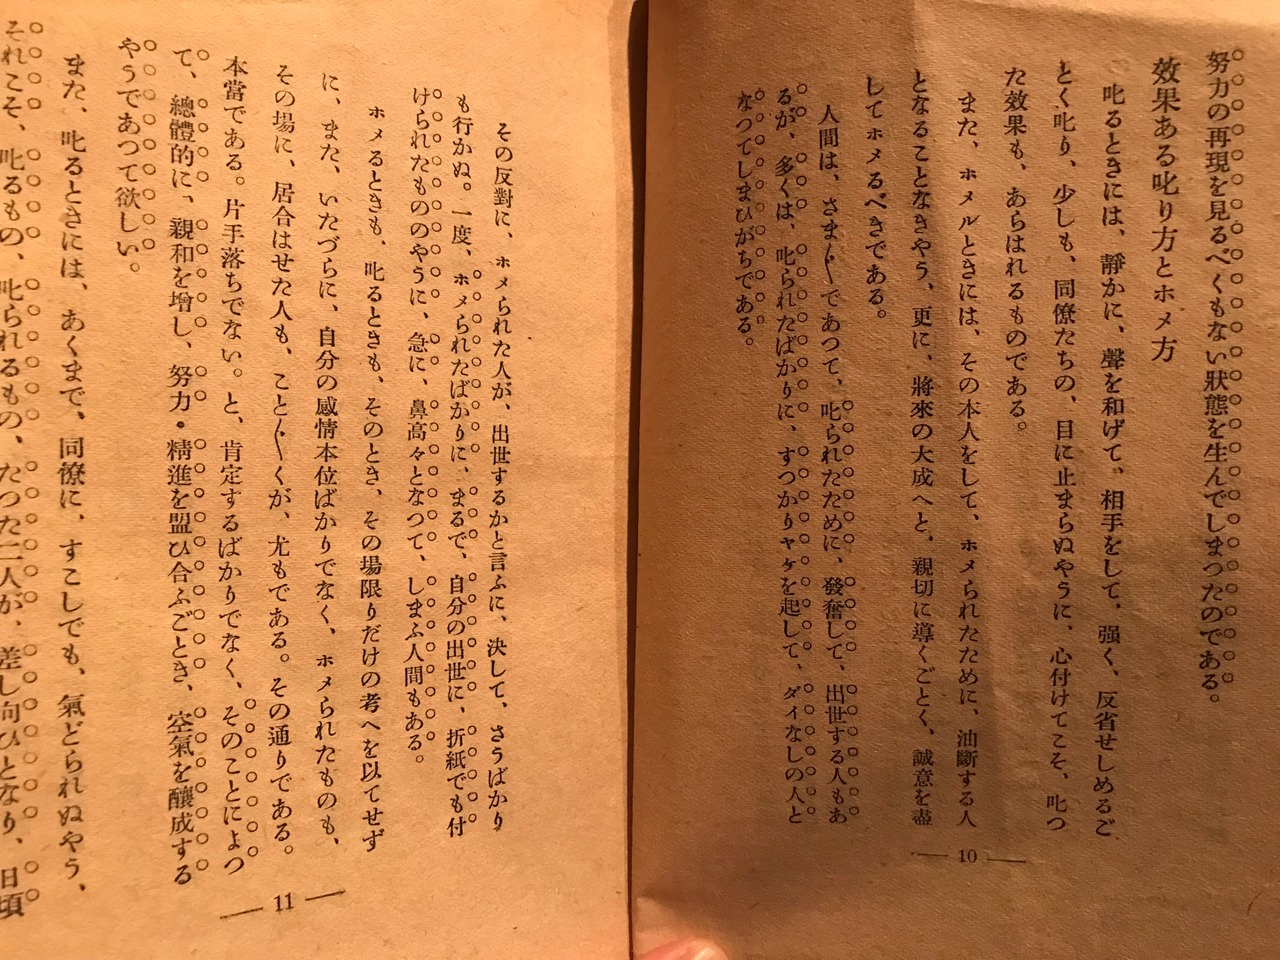 努力の再現を見るべくもない狀態を生んでしまつたのである。
效果ある叱り方とホメ方
叱るときには、靜かに、聲を和げて、相手をして、强く、反省せしめるご
とく叱り、少しも、同僚たちの、目に止まらぬやうに、心付けてこそ、叱つ
た效果も、あらはれるものである。
また、ホメルときには、その本人をして、ホメられたために、油斷する人
となることなきやう、更に、將來の大成へと、親切に導くごとく、誠意を盡
してホメるべきである。
人間は、さま〴〵であつて、叱られたために、發奮して、出世する人もあ
るが、多くは、叱られたばかりに、すつかりヤケを起して、ダイなしの人と
なつてしまひがちである。
— 10 —
その反對に、ホメられた人が、出世するかと言ふに、決して、さうばかり
も行かぬ。一度、ホメられたばかりに、まるで、自分の出世に、折紙でも付
けられたもののやうに、急に、鼻高々となつて、しまふ人間もある。
ホメるときも、叱るときも、そのとき、その場限りだけの考へを以てせず
に、また、いたづらに、自分の感情本位ばかりでなく、ホメられたものも、
その場に、居合はせた人も、こと〴〵くが、尤もである。その通りである。
本當である。片手落ちでない。と、肯定するばかりでなく、そのことによつ
て、總體的に、親和を增し、努力・精進を盟ひ合ふごとき、空氣を釀成する
やうであつて欲しい。
また、叱るときには、あくまで、同僚に、すこしでも、氣どられぬやう、
それこそ、叱るもの、叱られるもの、たつた二人が、差し向ひとなり、日頃
— 11 —